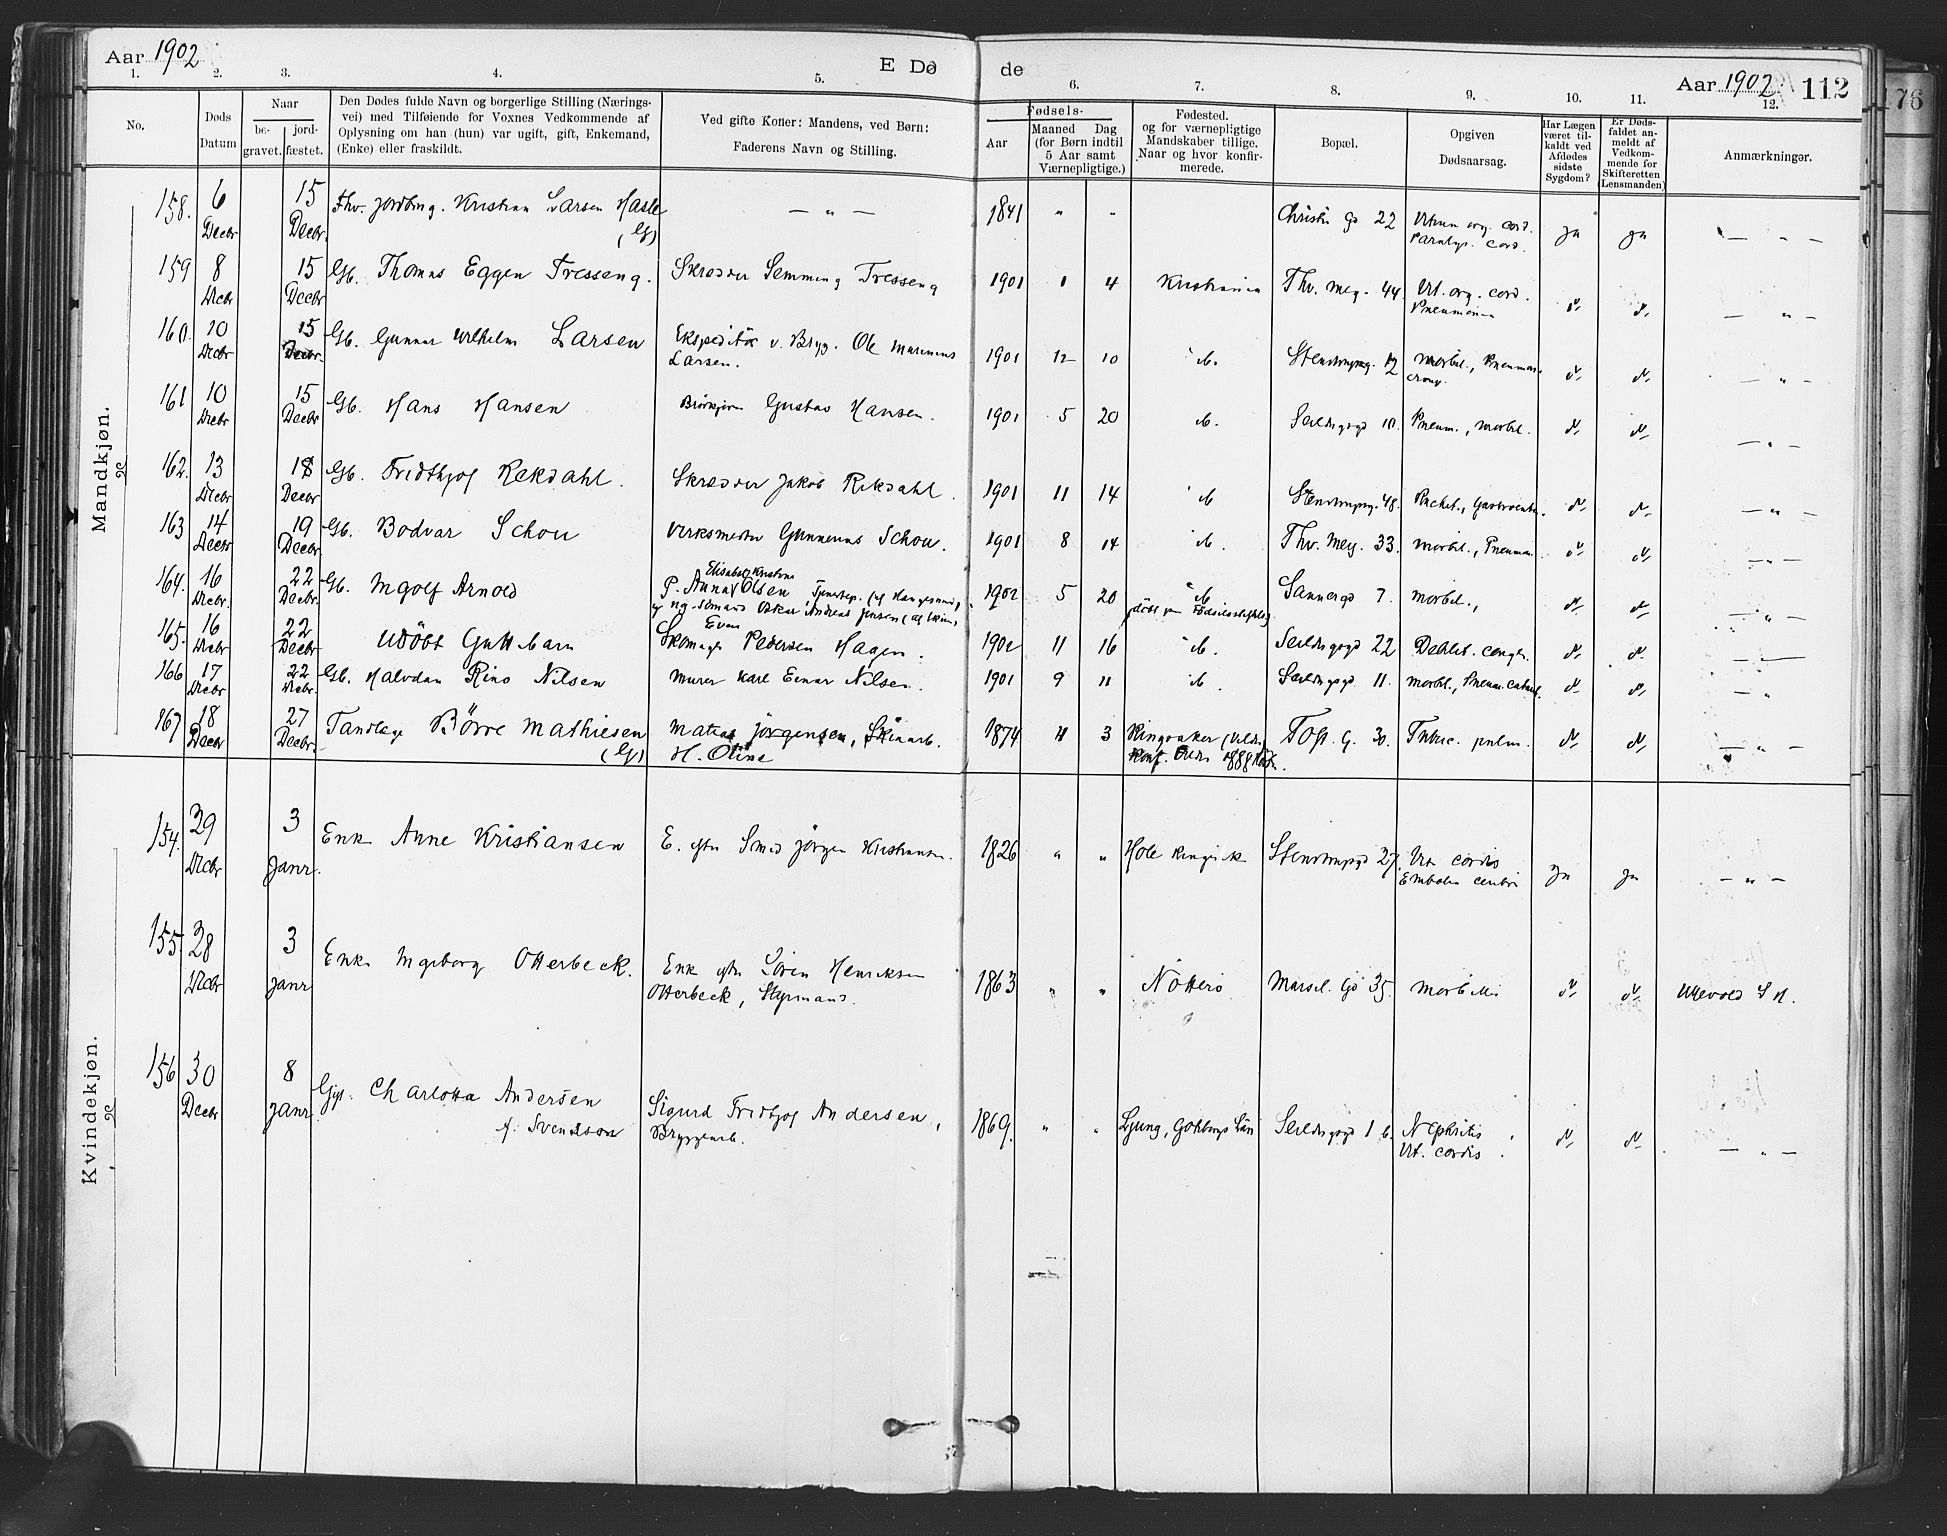 Aar 1902
E Dø
de
Aar 1902
112
176
1.
2.
3.
4.
5.
6.
7.
8.
9.
10.
11.
12.
No.
Døds
Datum
Naar
be-
gravet.
jord-
fæstet.
Den Dødes fulde Navn og borgerlige Stilling (Nærings-
vei) med Tilføiende for Voxnes Vedkommende af
Oplysning om han (hun) var ugift, gift, Enkemand,
(Enke) eller fraskildt.
Ved gifte Koner: Mandens, ved Børn:
Faderens Navn og Stilling.
Fødsels-
Aar
Maaned Dag
(for Børn indtil
5 Aar samt
Værnepligtige.)
Fødested.
og for værnepligtige
Mandskaber tillige.
Naar og hvor konfir-
merede.
Bopæl.
Opgiven
Dødsaarsag.
Har Lægen
været til-
kaldt ved
Afdødes
sidste
Sygdom?
Er Døds-
faldet an-
meldt af
Vedkom-
mende for
Skifteretten
(Lensmanden)
Anmærkninger.
Mandkjøn.
158. 6 Decbr 15 Decbr. Fhv. Jordbrug. Kristian Larsen Hasle (G) — " — 1841 " " Christi Gd 22 Vitium org. cord. Paralys. cord. ja ja — " —
159 8 Decbr 15 Decbr Gb. Thomas Eggen Tresseng. Skrædder Semming Tresseng 1901 1 4 Kristiania Thv. Mey. 44. Vit. org. cord. Pneumonia — " —
160. 10 Decbr 15 Decbr Gb. Gunnar Wilhelm Larsen Ekspeditør v. Bryg. Ole Marinius Larsen. 1901 12 10 Stenstrupsg. 12 Morbil., Pneumon. croup. — " —
161 10 Decbr 15 Decbr Gb. Hans Hansen Gustav Hansen. 1901 5 20 Seildugsgd 10. Pneum., morbil. — " —
162. 13 Decbr 18 Decbr Gb. Fridthjof Rekdahl. Skrædder Jakob Rekdahl. 1901 11 14 Stenstrupsg. 48. Rachit., Gastroenter. — " —
163 14 Decbr 19 Decbr. Gb. Bodvar Schou Verksmester Gunnerius Schou. 1901 8 14 Thv. Mey. 33. Morbil., Pneumon. — " —
164. 16 Decbr. 22 Decbr. Gb. Ingolf Arnold P. Anna Elisabeth Kristine Olsen Tjenestep. (af Haugesund) og Ug. Sømand Oskar Andreas Jensen 1902 5 20 Døbt paa Fødselsstiftelsen Sannergd 7. Morbil., — " —
165. 16 Decbr 22 Decbr Udøbt Guttebarn Skomager Even Pedersen Hagen. 1902 11 16 Seildugsgd 22 Debilit. congen. — " —
166 17 Decbr 22 Decbr. Gb. Halvdan Rino Nilsen Murer Karl Einar Nilsen. 1901 9 11 Seildugsgd 11. Morbil., Pneum. catarrh. — " —
167 18 Decbr 27 Decbr. Tandlæge Børre Mathiesen (G) Matias Jörgensen, Skiaarb. H. Oline 1874 11 3 Ringsaker Konf. 1888 Toft. G. 30. Tuberc. pulm. — " —
Kvindekjøn.
154. 29 Decbr 3 Janr. Enk Anne Kristiansen E. efter Smed Jörgen Kristiansen. 1826 " " Hole Ringerike Stenstrupgd 27. Vit. cordis Embolia cerebri ja ja — " —
155. 28 Decbr 3 Janr Enke Ingeborg Otterbeck. Enk efter Sören Henriksen Otterbeck, Styrmand. 1863 " " Nötterö Marsel. Gd 35. Morbilli Ullevold S.H.
156 30 Decbr 8 Janr Gift. Charlotta Andersen f. Svendson Sigurd Fridtjof Andersen, Bryggearb. 1869. " " Ljung, Gøteborgs Län Seildugsgd 1 b. Nephritis Vit. cordis. — " —